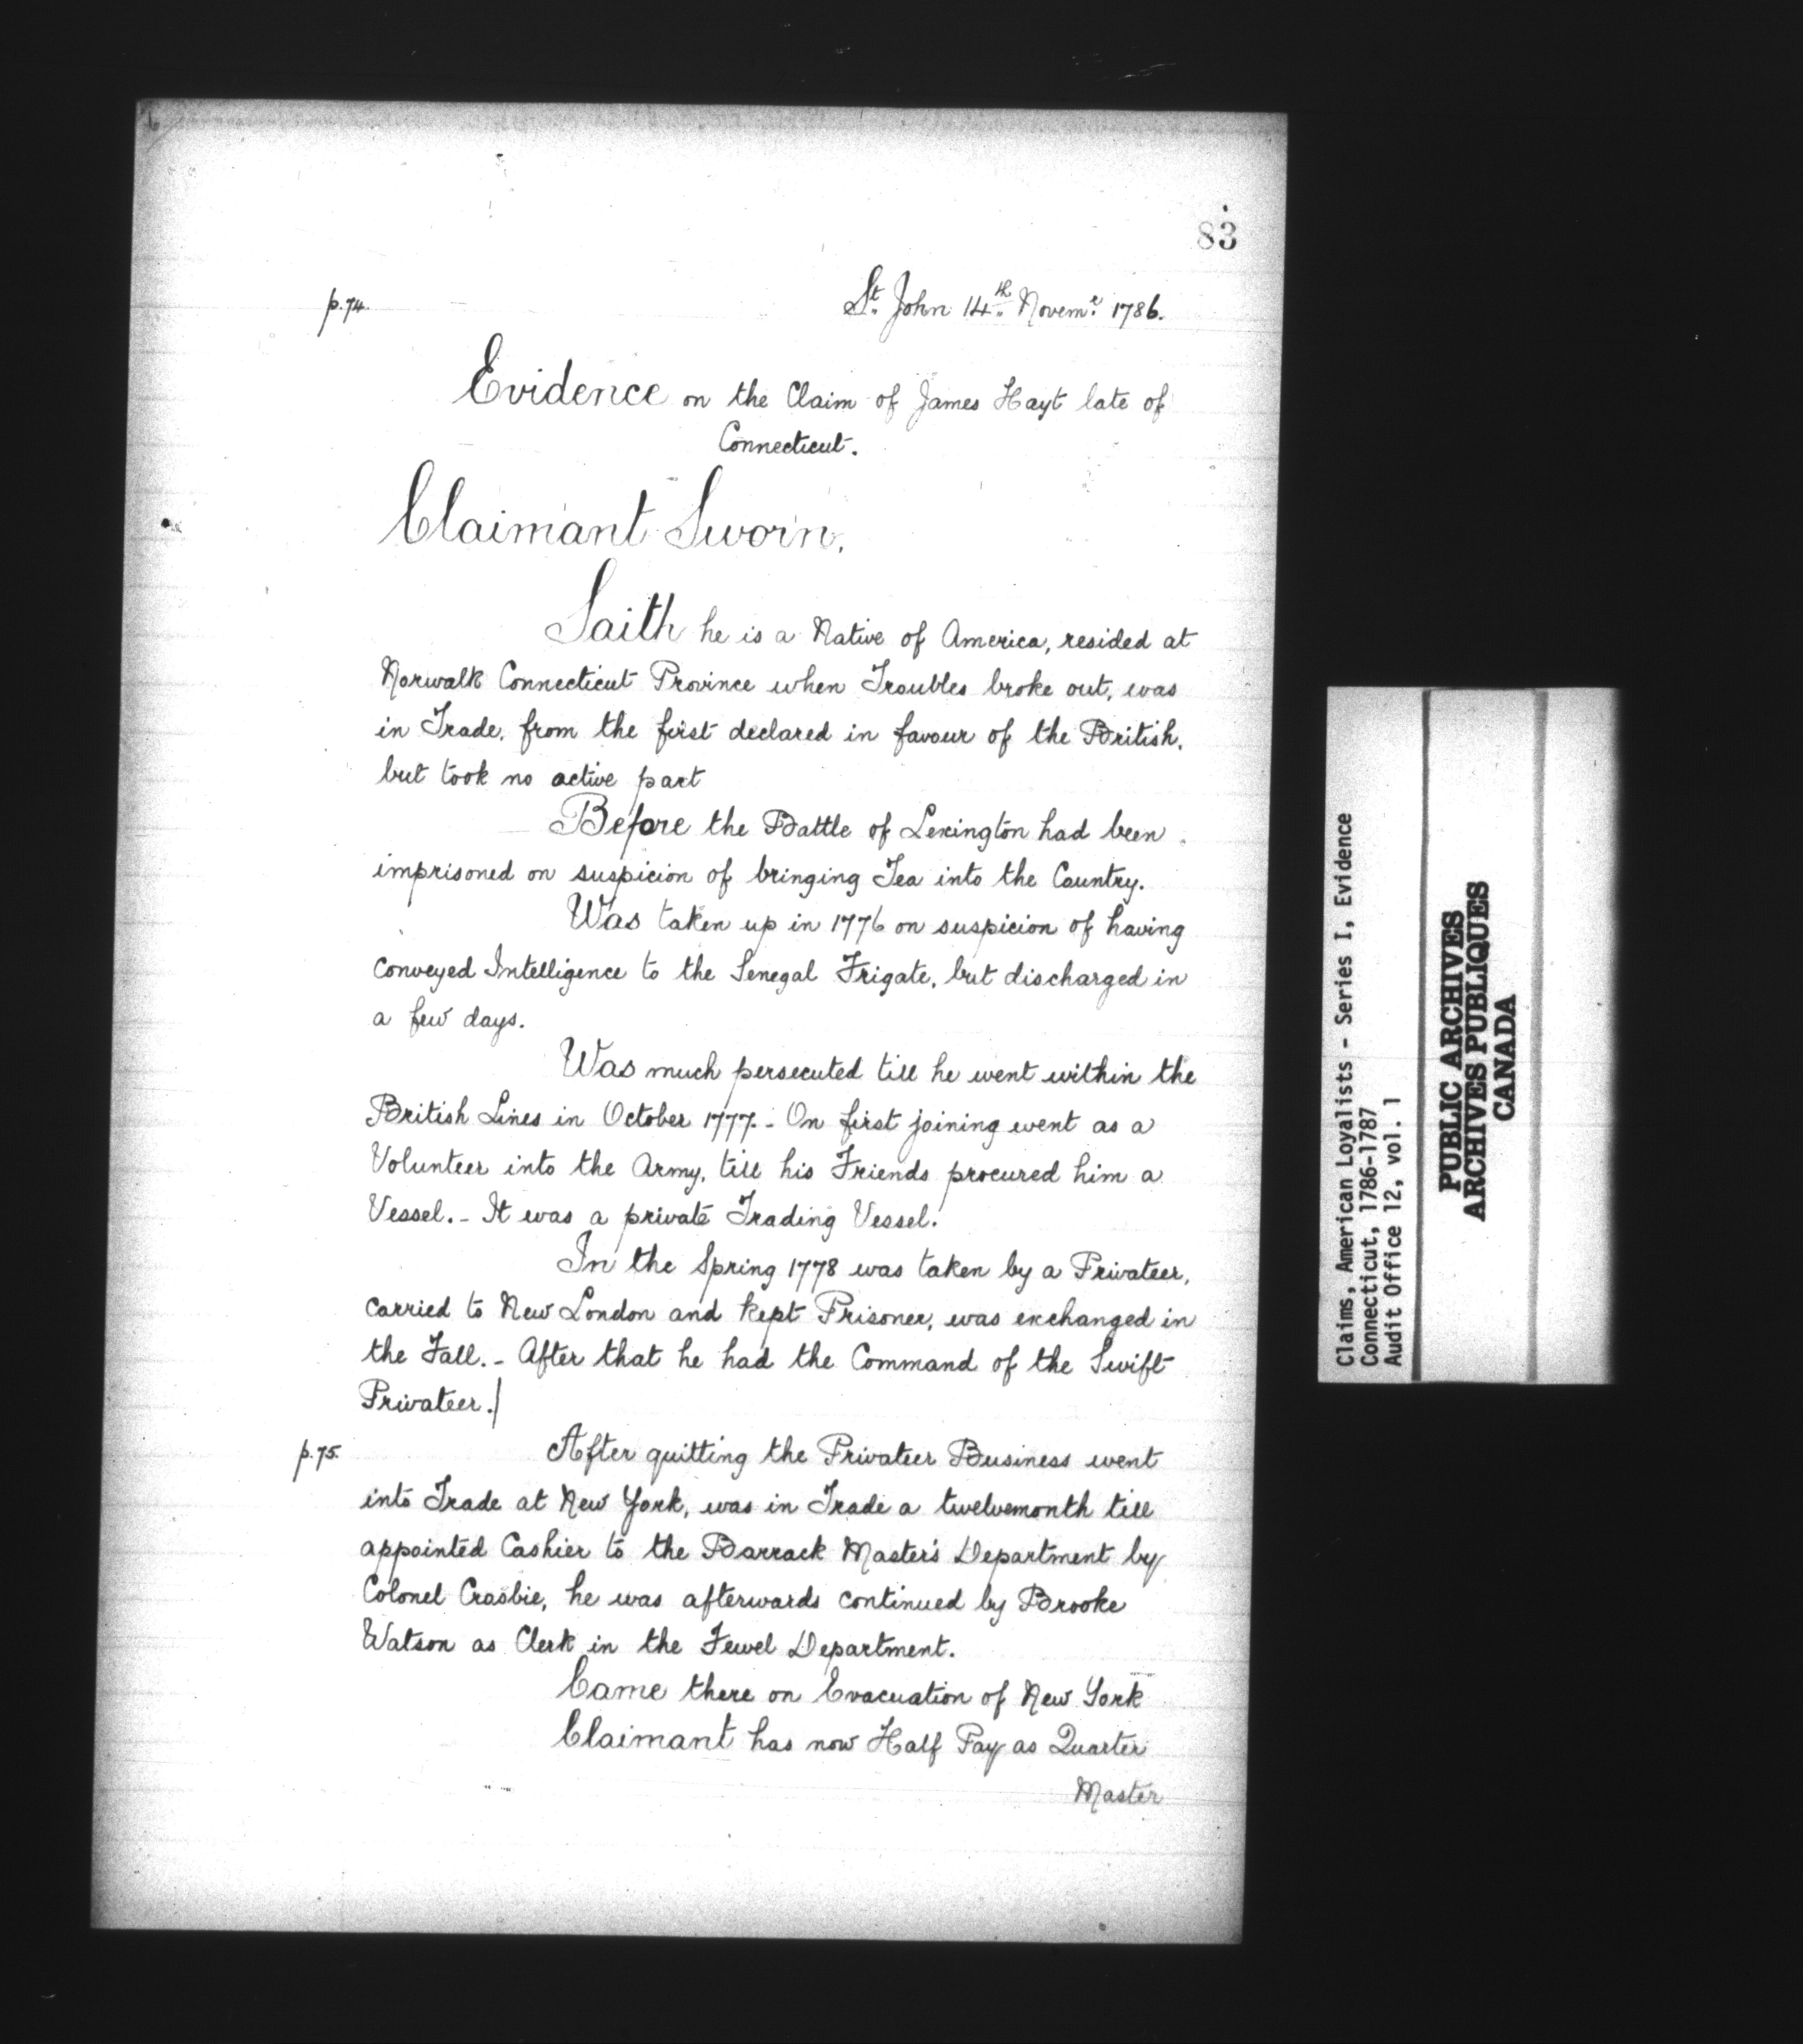 83
p.74.
St. John 14th Novemr. 1786.
Evidence on the Claim of James Hayt late of
Connecticut.
Claimant Sworn.
Saith he is a Native of America, resided at
Norwalk Connecticut Province when Troubles broke out, was
in Trade, from the first declared in favour of the British,
but took no active part
Before the Battle of Lexington had been
imprisoned on suspicion of bringing Tea into the Country.
Was taken up in 1776 on suspicion of having
conveyed Intelligence to the Senegal Frigate, but discharged in
a few days.
Was much persecuted till he went within the
British Lines in October 1777. - On first joining went as a
Volunteer into the Army, till his Friends procured him a
Vessel. - It was a private Trading Vessel.
In the Spring 1778 was taken by a Privateer,
carried to New London and kept Prisoner, was exchanged in
the Fall. - After that he had the Command of the Swift
Privateer.|
p.75.
After quitting the Privateer Business went
into Trade at New York, was in Trade a twelvemonth till
appointed Cashier to the Barrack Master's Department by
Colonel Crosbie, he was afterwards continued by Brooke
Watson as Clerk in the Fewel Department.
Came there on Evacuation of New York
Claimant has now Half Pay as Quarter
Master
Claims, American Loyalists - Series I, Evidence
Connecticut, 1786-1787
Audit Office 12, vol. 1
PUBLIC ARCHIVES
ARCHIVES PUBLIQUES
CANADA